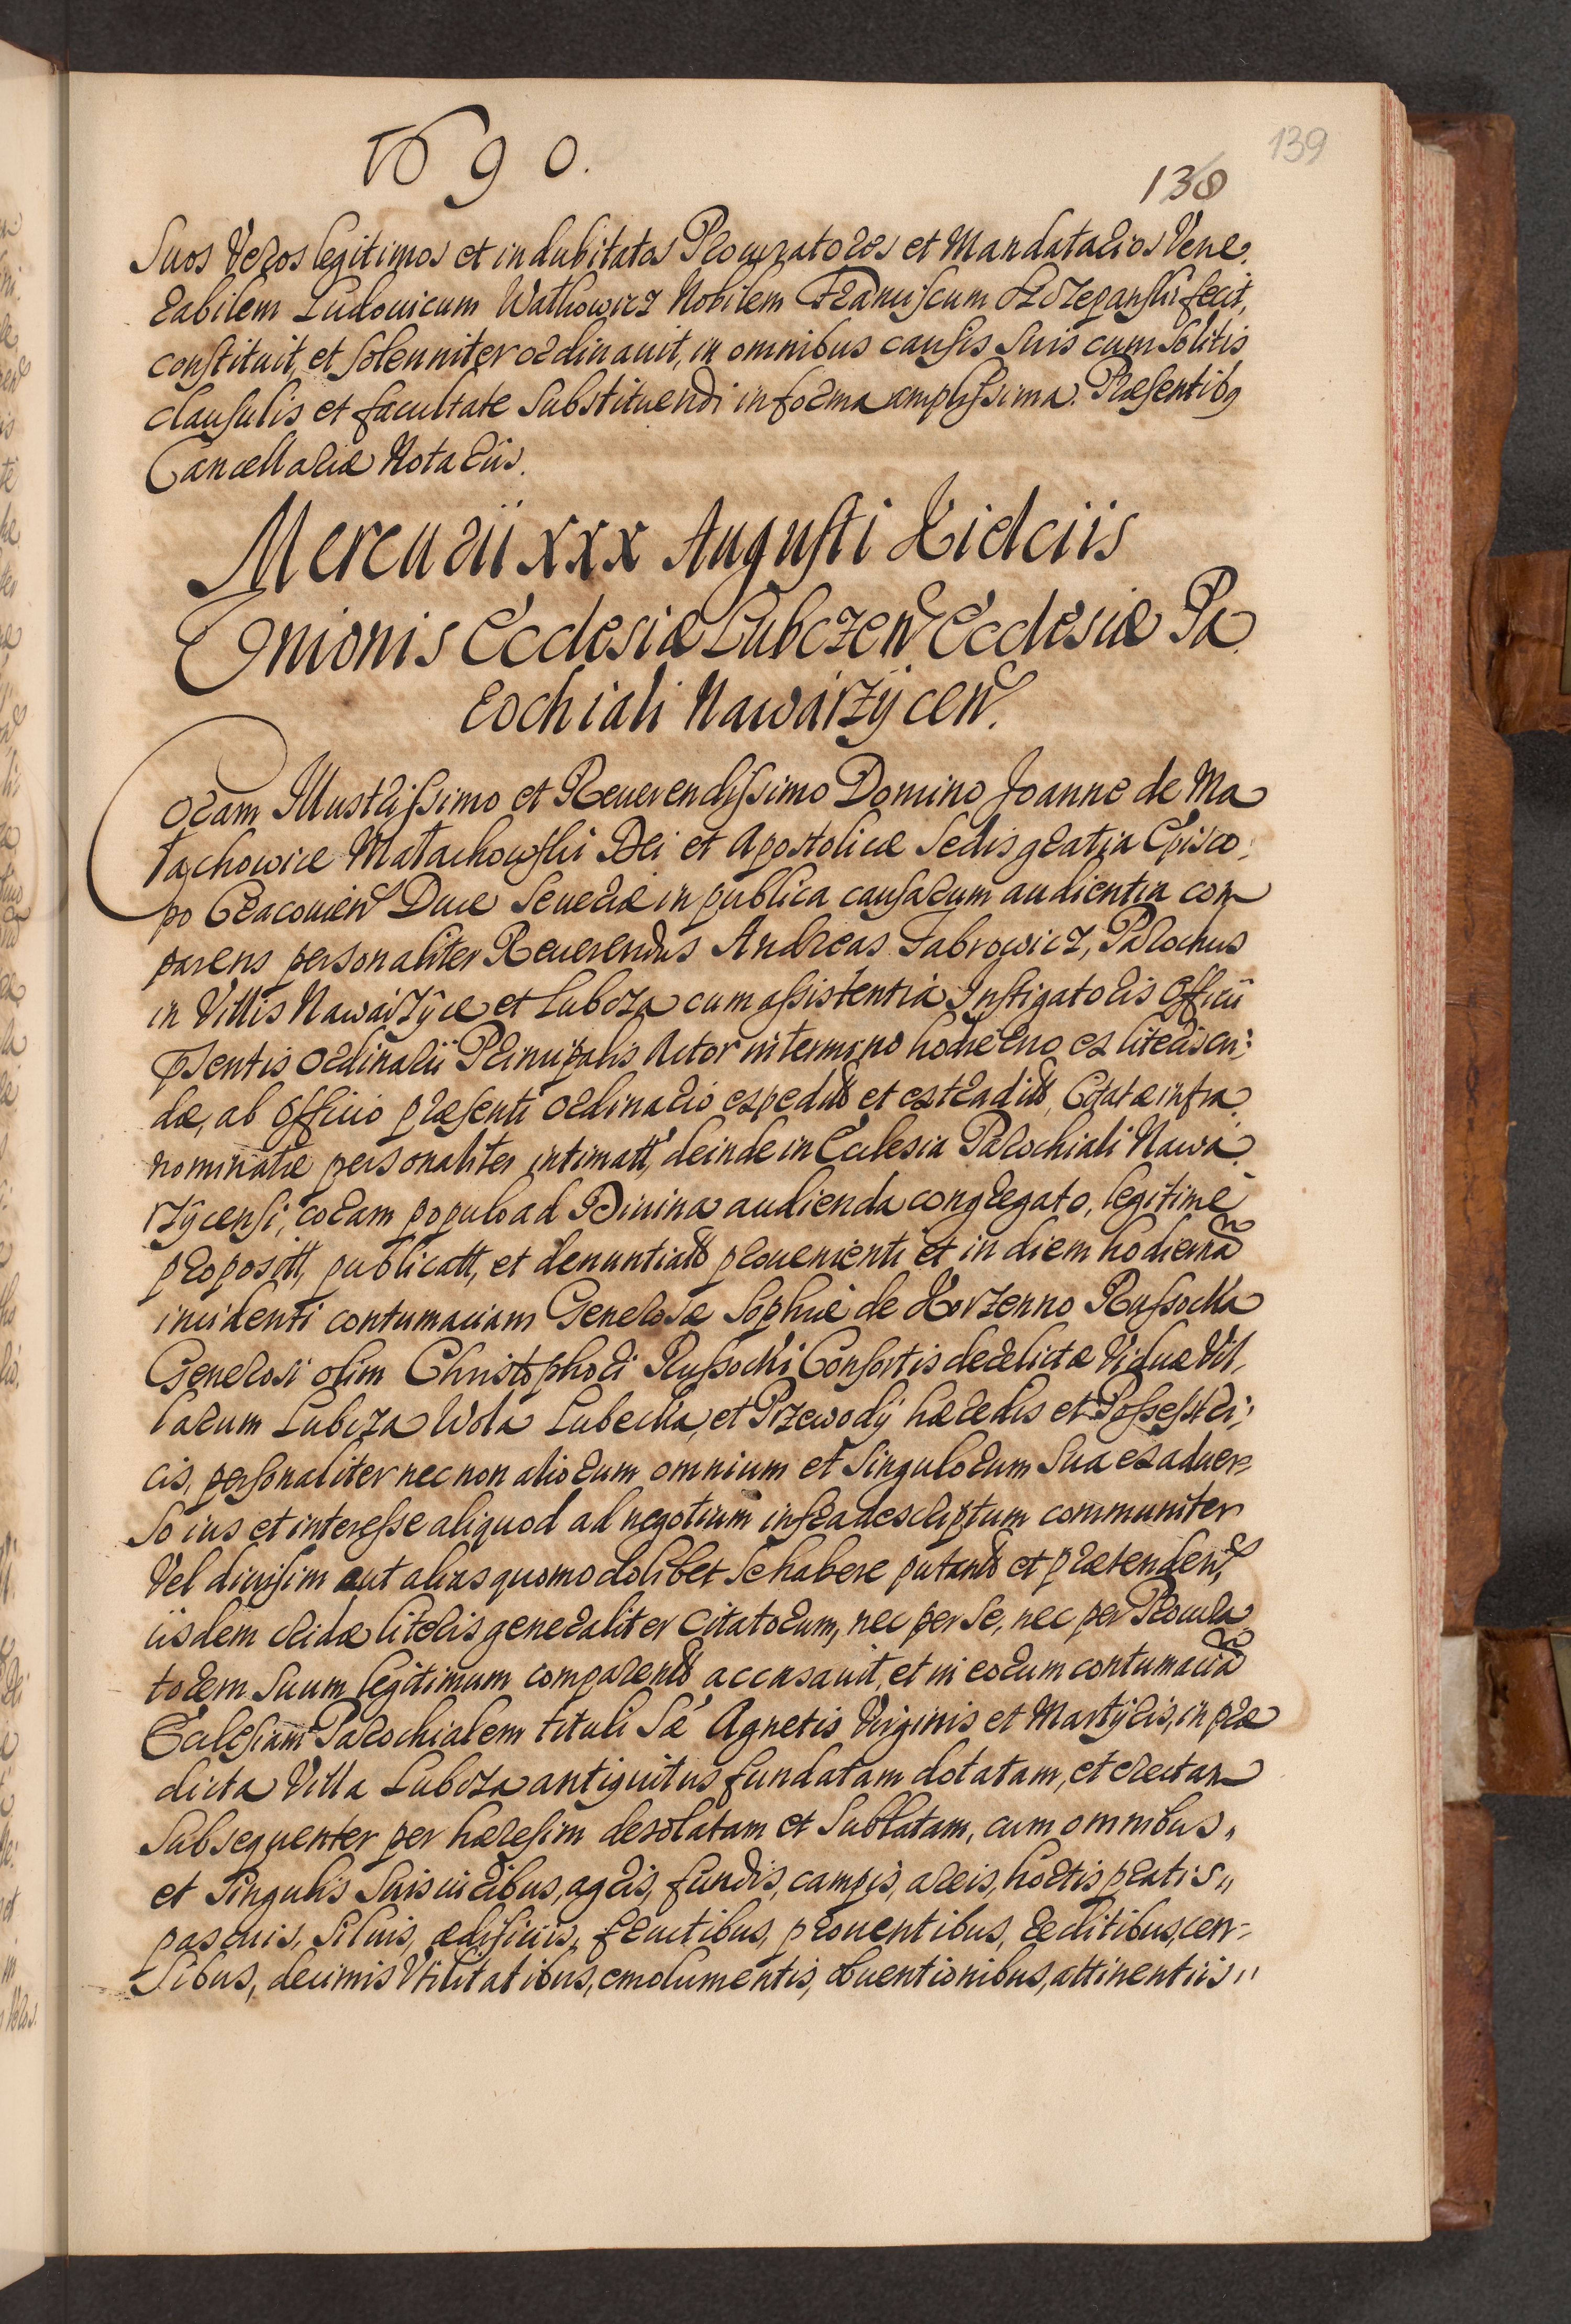 1690.
139
138
Suos Veros legitimos et indubitatos Procuratores et Mandatarios Vene,
rabilem Ludouicum Wathowicz Nobilem Franciscum Szczepanski fecit,
constituit, et solenniter ordinauit, in omnibus causis suis cum solitis
clausulis et facultate substituendi in forma amplissima. Præsentibq
Cancellariæ Notariis.
Mercurii xxx Augusti Kielciis
Unionis Ecclesiæ Lubczen Ecclesiæ Pa
rochiali Nawárzÿcen.
Coram Illustrissimo et Reuerendissimo Domino Joanne de Ma
łachowice Małachowski Dei et Apostolicæ Sedis gratia Episco:
po Cracouien Duce Seueriæ in publica causarum audientia com
parens personaliter Reuerendus Andreas Fabrowicz, Parochus
in Villis Nawárzÿce et Lubcza cum assistentia Instigatoris Officii
pntis Ordinarii Principalis Actor in termino hodierno ex literis cri:
dæ, ab Officio præsenti Ordinario expedit et extradit, Citatæ infra
nominatæ personaliter intimatt, deinde in Ecclesia Parochiali Nawá
rzÿcensi, coram populo ad Diuina audienda congregato, legitimè
propositt, publicatt, et denuntiatt prouenienti et in diem hodierna
incidenti contumaciam Generosæ Sophiæ de Korzenno Russocka
Generosi olim Christophori Russocki Consortis derelictæ Viduæ Vil,
larum Lubcza Wola Lubecka, et Przewodÿ hæredis et Possessri:
cis, personaliter nec non aliorum omnium et singulorum sua ex aduer=
so ius et interesse aliquod ad negotium infra descriptum communiter
Vel diuisim aut alias quomodolibet se habere putant et prætenden,
iisdem cridæ literis generaliter citatorum, nec per se, nec per Procura
torem suum legitimum comparent accusauit, et in eorum contumacia
Ecclesiam Parochialem tituli Sæ Agnetis Virginis et Martÿris, in præ
dicta Villa Lubcza antiquitus fundatam dotatam, et erectam
subsequenter per hæresim desolatam et sublatam, cum omnibus,,
et singulis suis iuribus, agris, fundis, campis, areis, hortis pratis,,
pascuis, siluis, ædificiis, fructibus, prouentibus, reditibus, cen=
sibus, decimis Vtilitatibus, emolumentis, obuentionibus, attinentiis,,